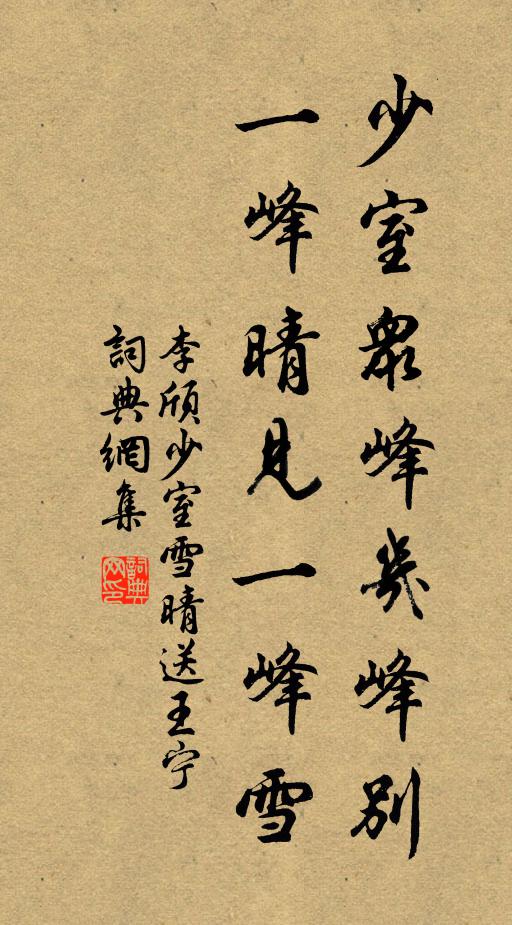 少室眾峰幾峰別
一峰晴見一峰雪
李頎少室雪晴送王宁
詞典網集
詞典网印